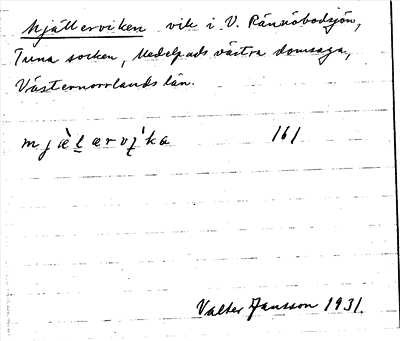 Mjällerviken vik i V. Rännöbodsjön,
Tuna socken, Medelpads västra domsaga,
Västernorrlands län.
mjæ̀lærvi̍ka 161
Valter Jansson 1931.